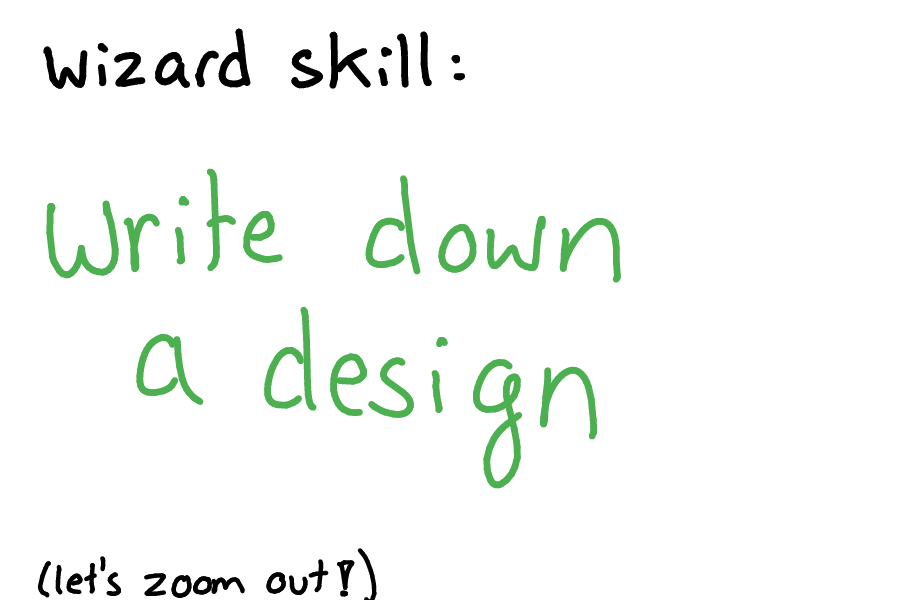 wizard skill:
Write down
a design
(let's zoom out!)